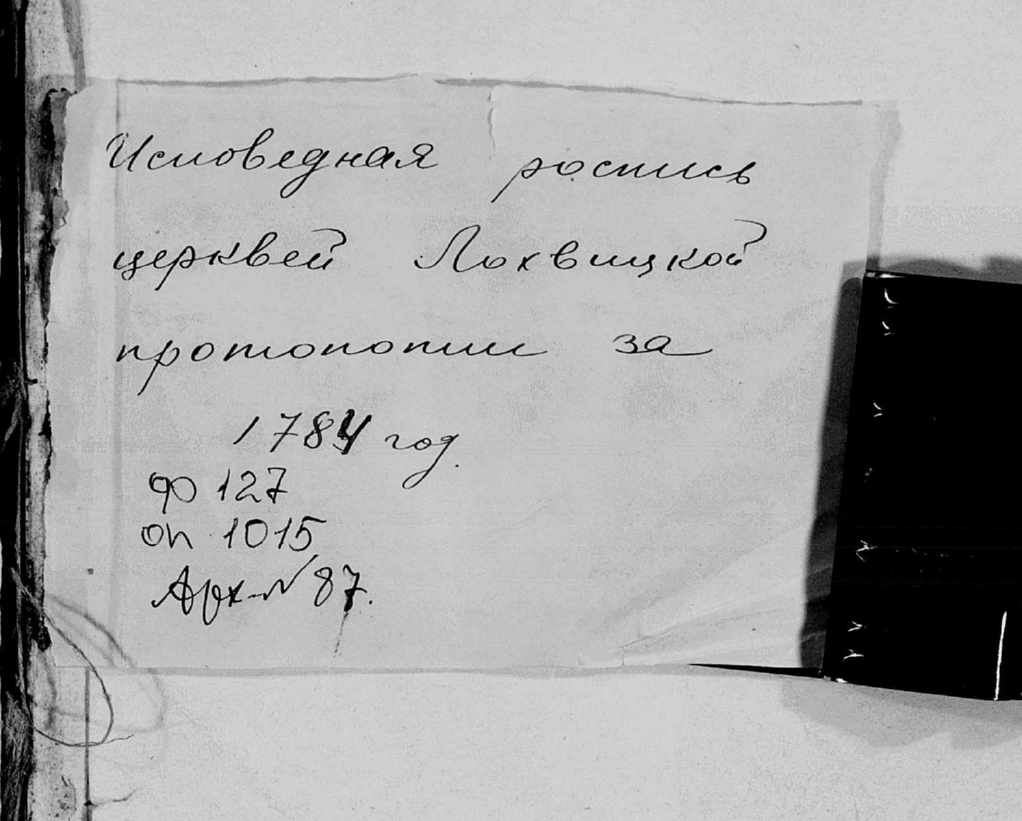 Исповедная роспись
церквей Лохвицкой
протопопии за
1784 год.
ф 127
оп 1015
Арх-N 87.